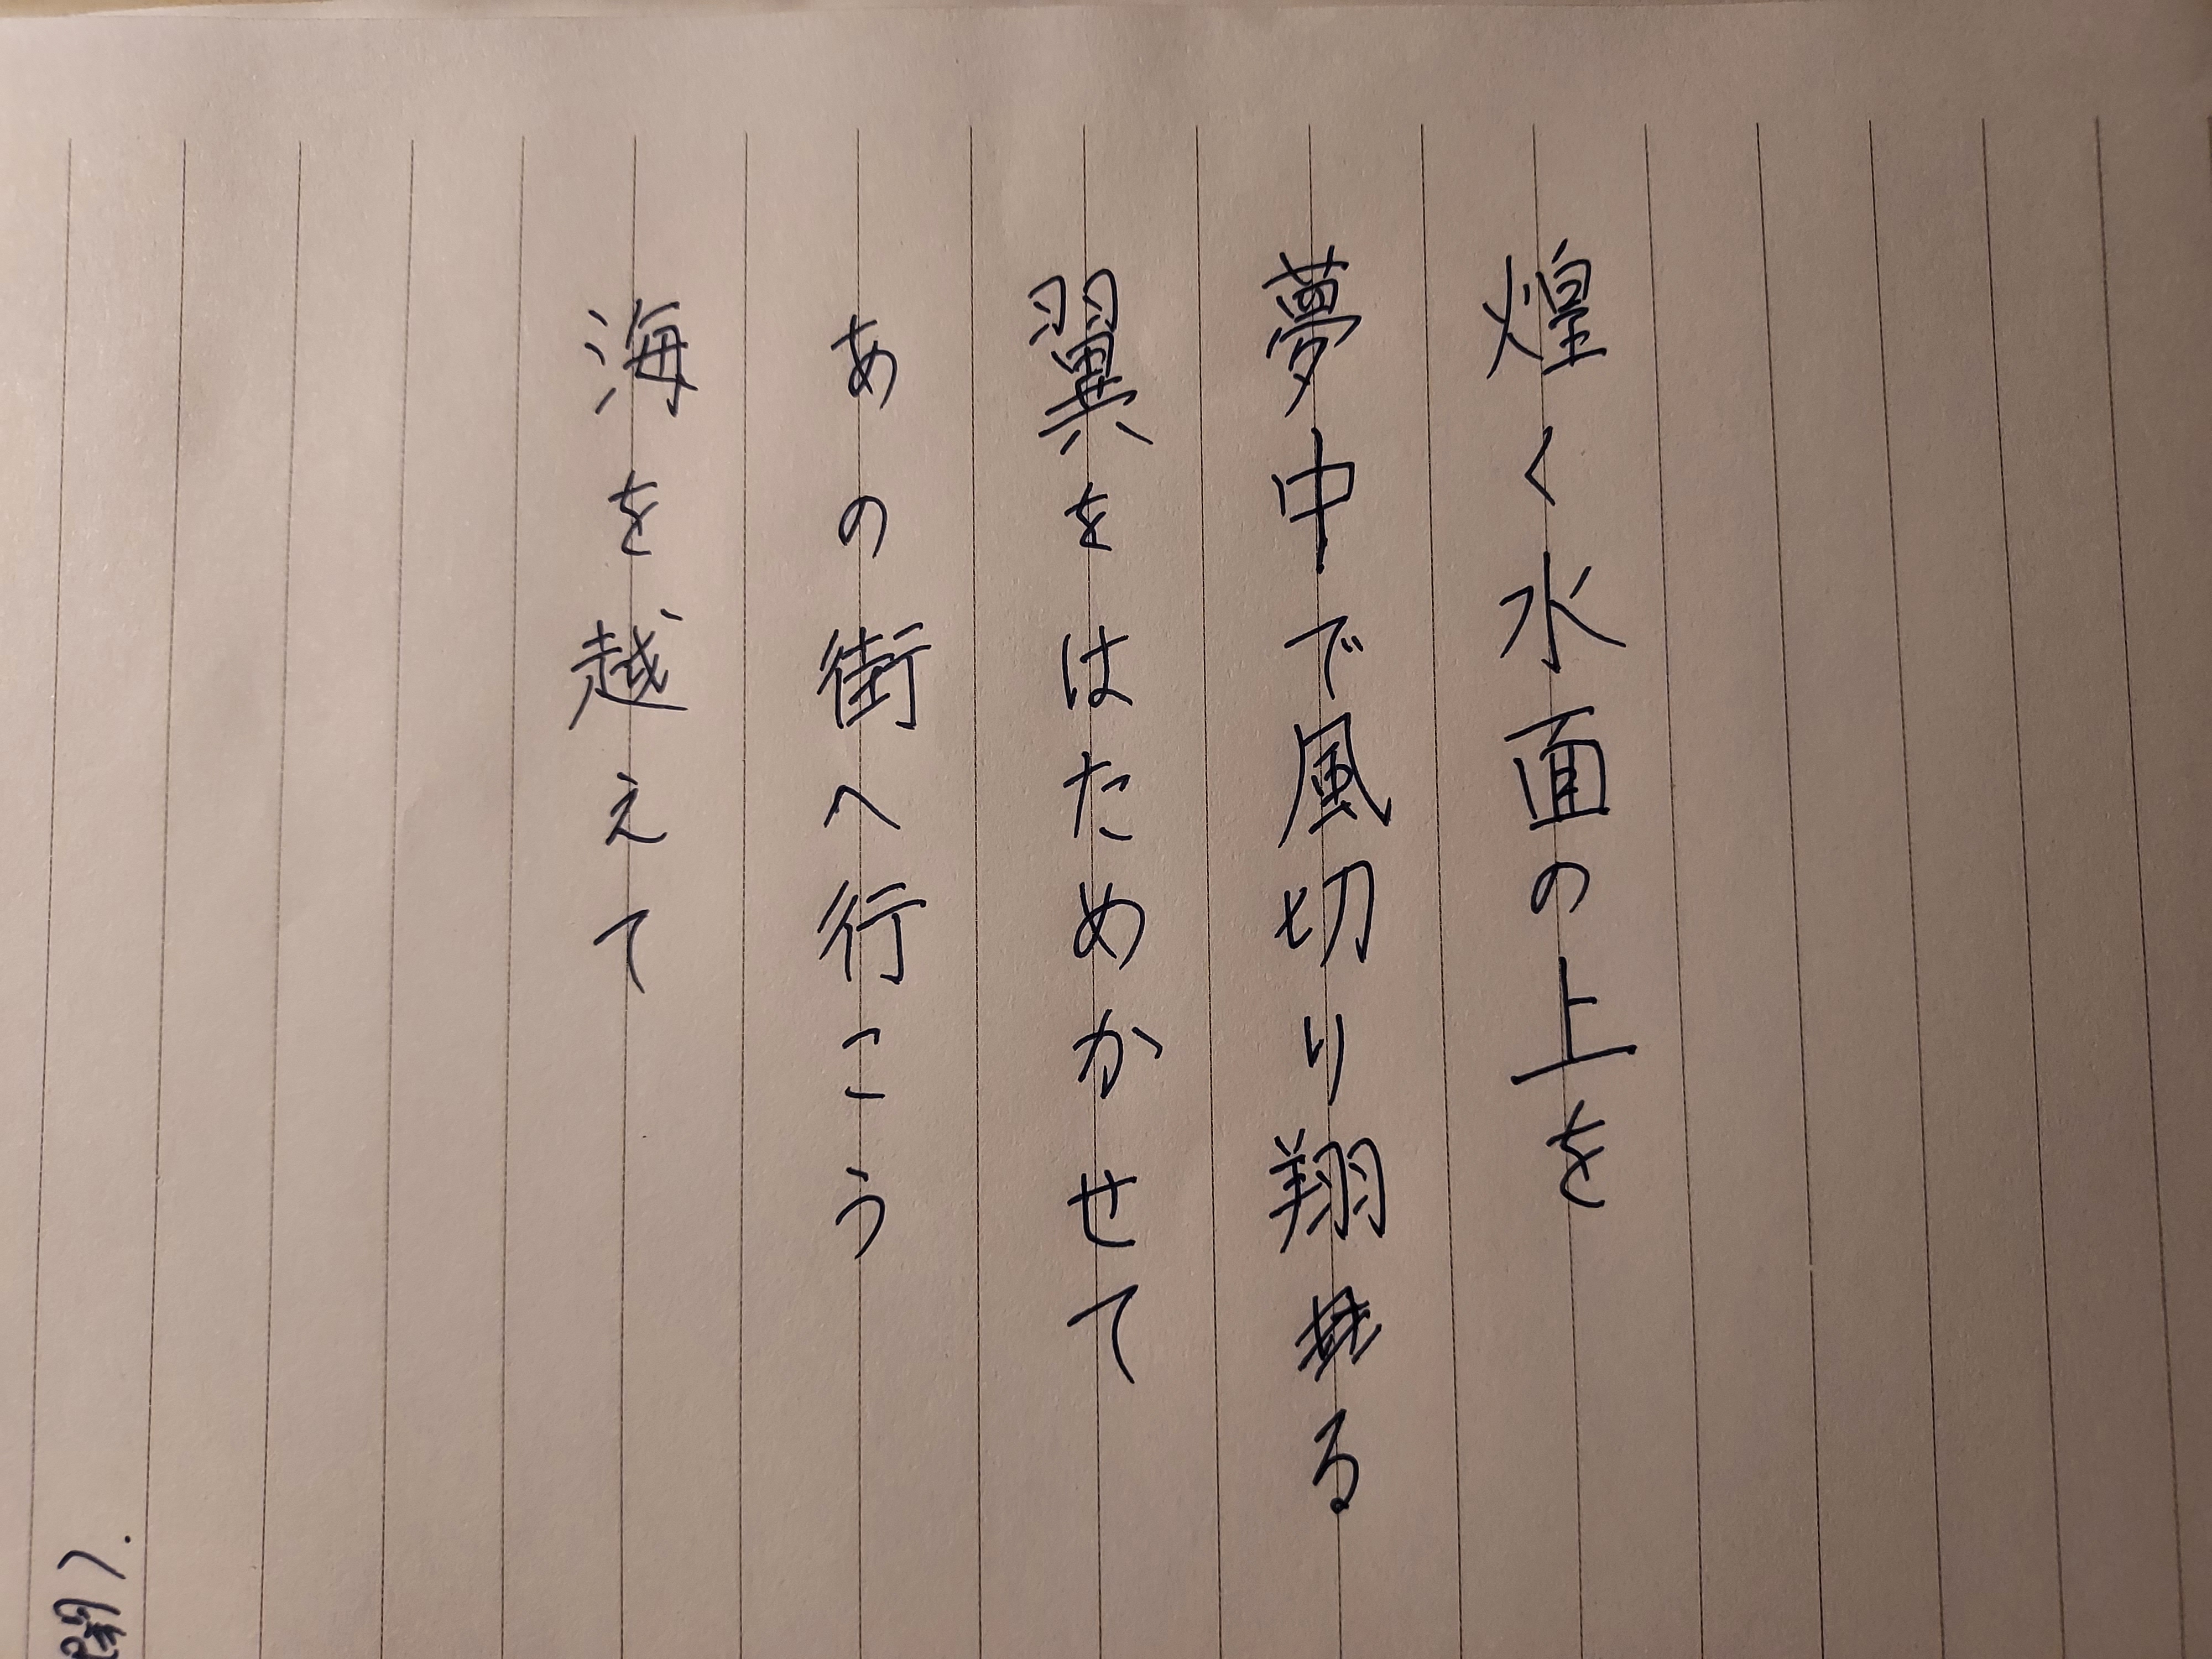 煌く水面の上を
夢中で風切り翔る
翼をはためかせて
あの街へ行こう
海を越えて